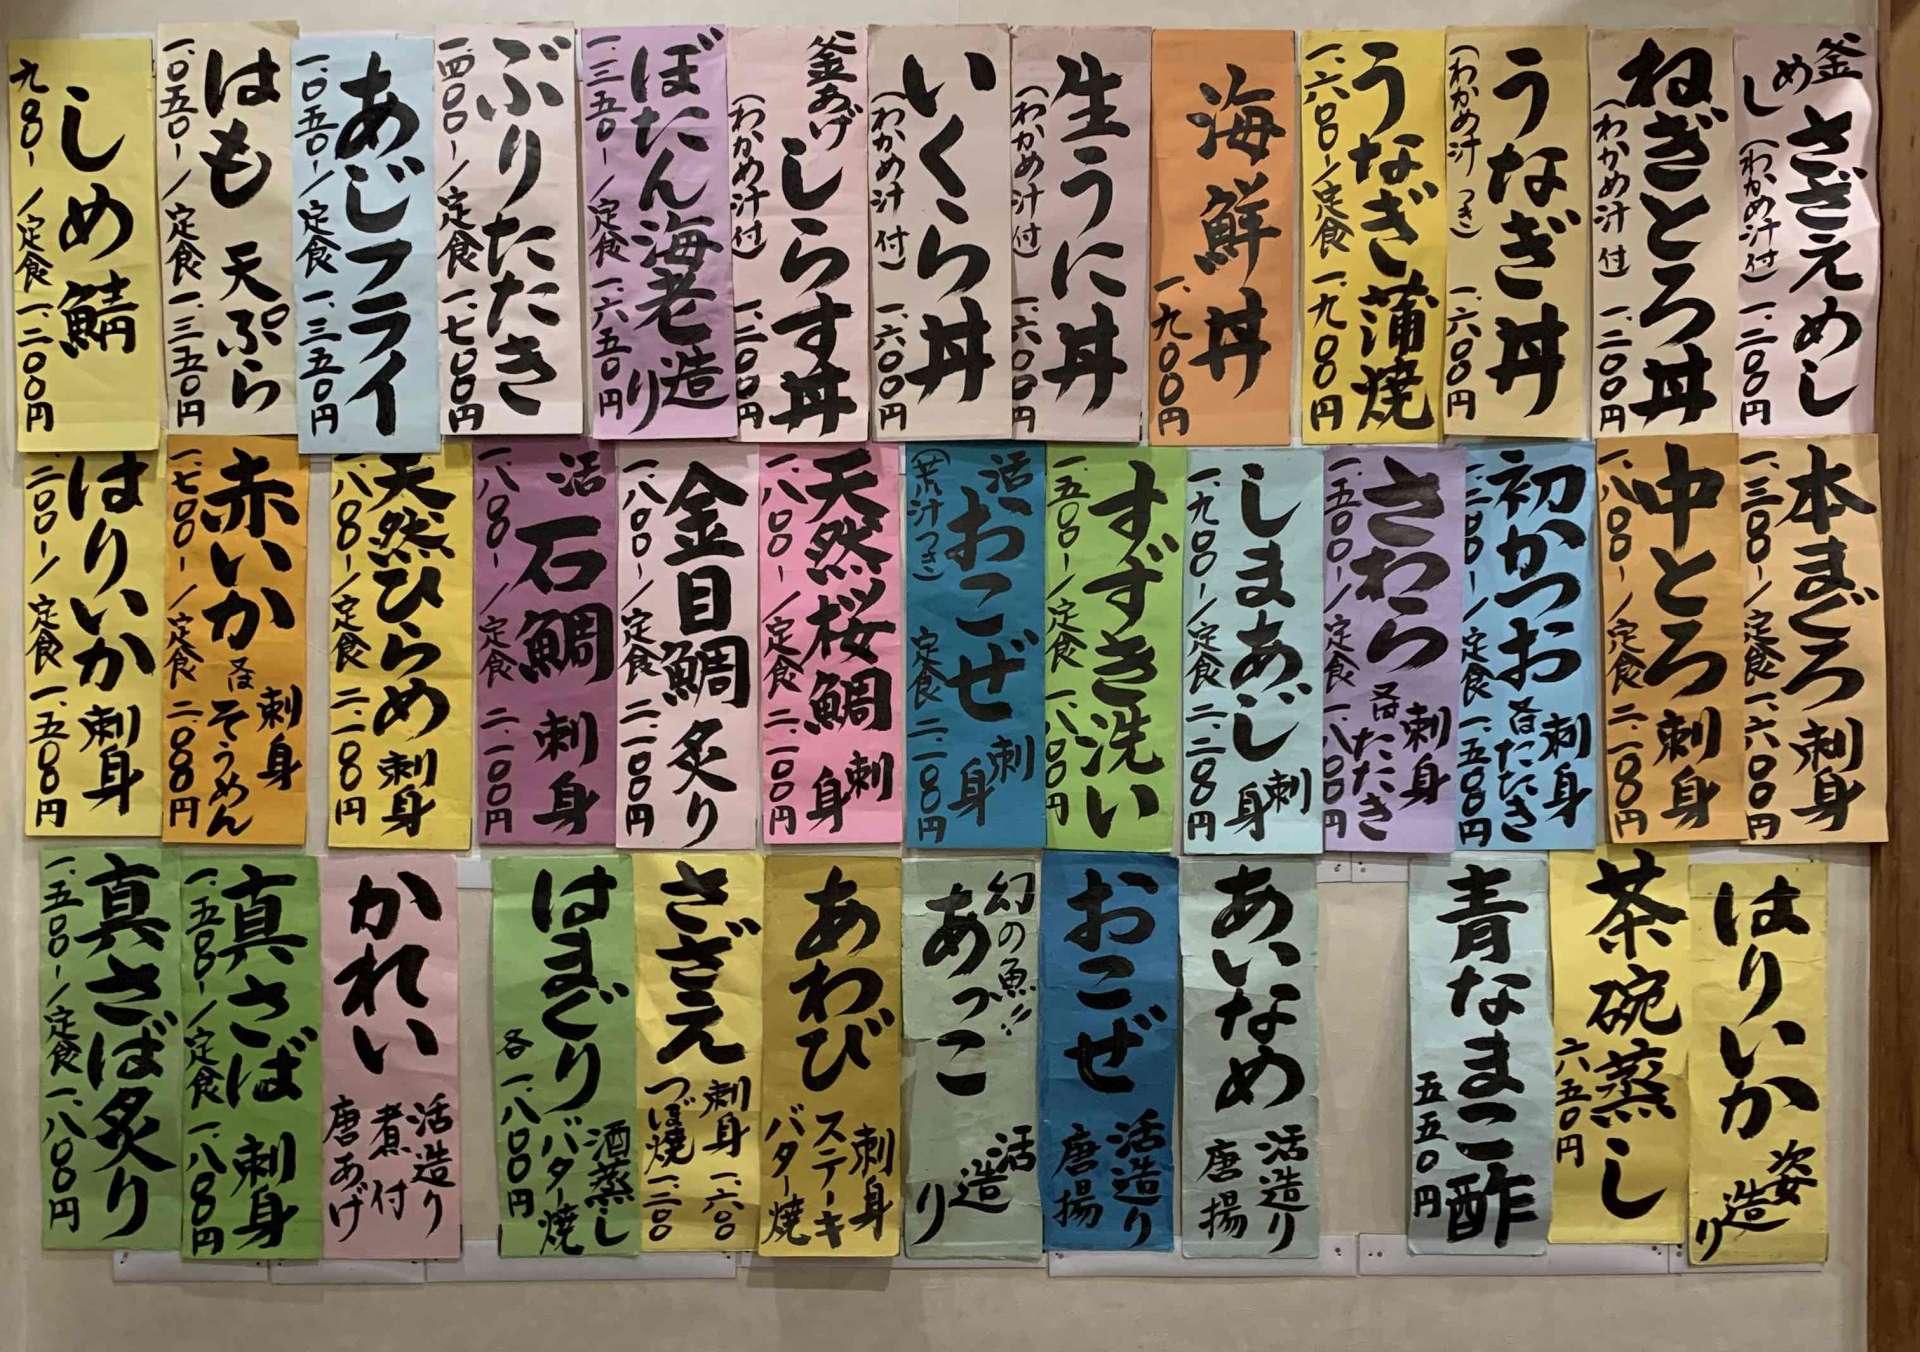 釜めし さざえめし
(わかめ汁付) 一.二〇〇円
ねぎとろ丼
(わかめ汁付) 一.二〇〇円
うなぎ丼
(わかめ汁つき) 一.六〇〇円
うなぎ蒲焼
一.六〇〇-/定食 一.九〇〇円
海鮮丼
一.九〇〇円
生うに丼
(わかめ汁付) 一.六〇〇円
いくら丼
(わかめ汁付) 一.六〇〇円
釜あげしらす丼
(わかめ汁付) 一.二〇〇円
ぼたん海老造り
一.三五〇-/定食 一.六五〇円
ぶりたたき
一.四〇〇-/定食 一.七〇〇円
あじフライ
一.〇五〇-/定食 一.三五〇円
はも 天ぷら
一.〇五〇-/定食 一.三五〇円
しめ鯖
九〇〇-/定食 一.二〇〇円
本まぐろ 刺身
一.三〇〇-/定食 一.六〇〇円
中とろ 刺身
一.八〇〇-/定食 二.一〇〇円
初かつお 刺身 又はたたき
一.二〇〇-/定食 一.五〇〇円
さわら 刺身 又はたたき
一.五〇〇-/定食 一.八〇〇円
しまあじ 刺身
一.九〇〇-/定食 二.二〇〇円
すずき洗い
一.五〇〇-/定食 一.八〇〇円
活おこぜ 刺身
(荒汁つき) 定食 二.一〇〇円
天然桜鯛 刺身
一.八〇〇-/定食 二.一〇〇円
金目鯛 炙り
一.八〇〇-/定食 二.一〇〇円
活 石鯛 刺身
一.八〇〇-/定食 二.一〇〇円
天然ひらめ 刺身
一.八〇〇-/定食 二.一〇〇円
赤いか 刺身 又はそうめん
一.七〇〇-/定食 二.〇〇〇円
はりいか 刺身
一.二〇〇-/定食 一.五〇〇円
はりいか 姿造り
茶碗蒸し
六五〇円
青なまこ酢
五五〇円
あいなめ 活造り
唐揚
おこぜ 活造り
唐揚
幻の魚!!
あっこ 活造り
あわび 刺身
ステーキ
バター焼
さざえ 刺身 一.六〇〇
つぼ焼 一.二〇〇
はまぐり 酒蒸し
バター焼
各一.八〇〇円
かれい 活造り
煮付
唐あげ
真さば 刺身
一.五〇〇-/定食 一.八〇〇円
真さば炙り
一.五〇〇-/定食 一.八〇〇円